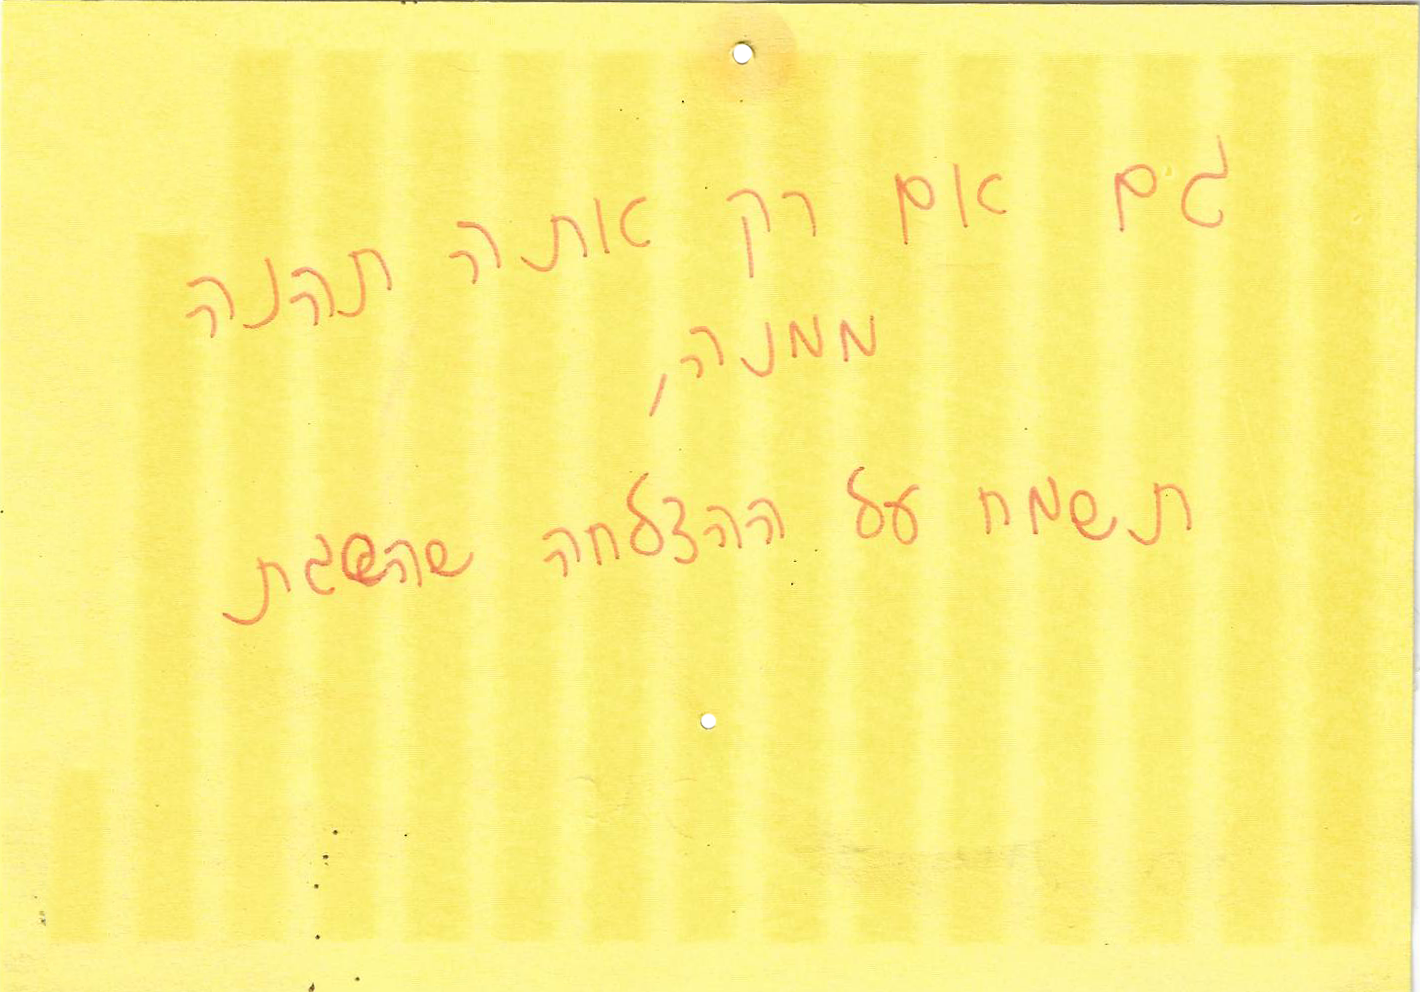 גם אם רק אתה תהנה
ממנה,
תשמח על ההצלחה שהשגת